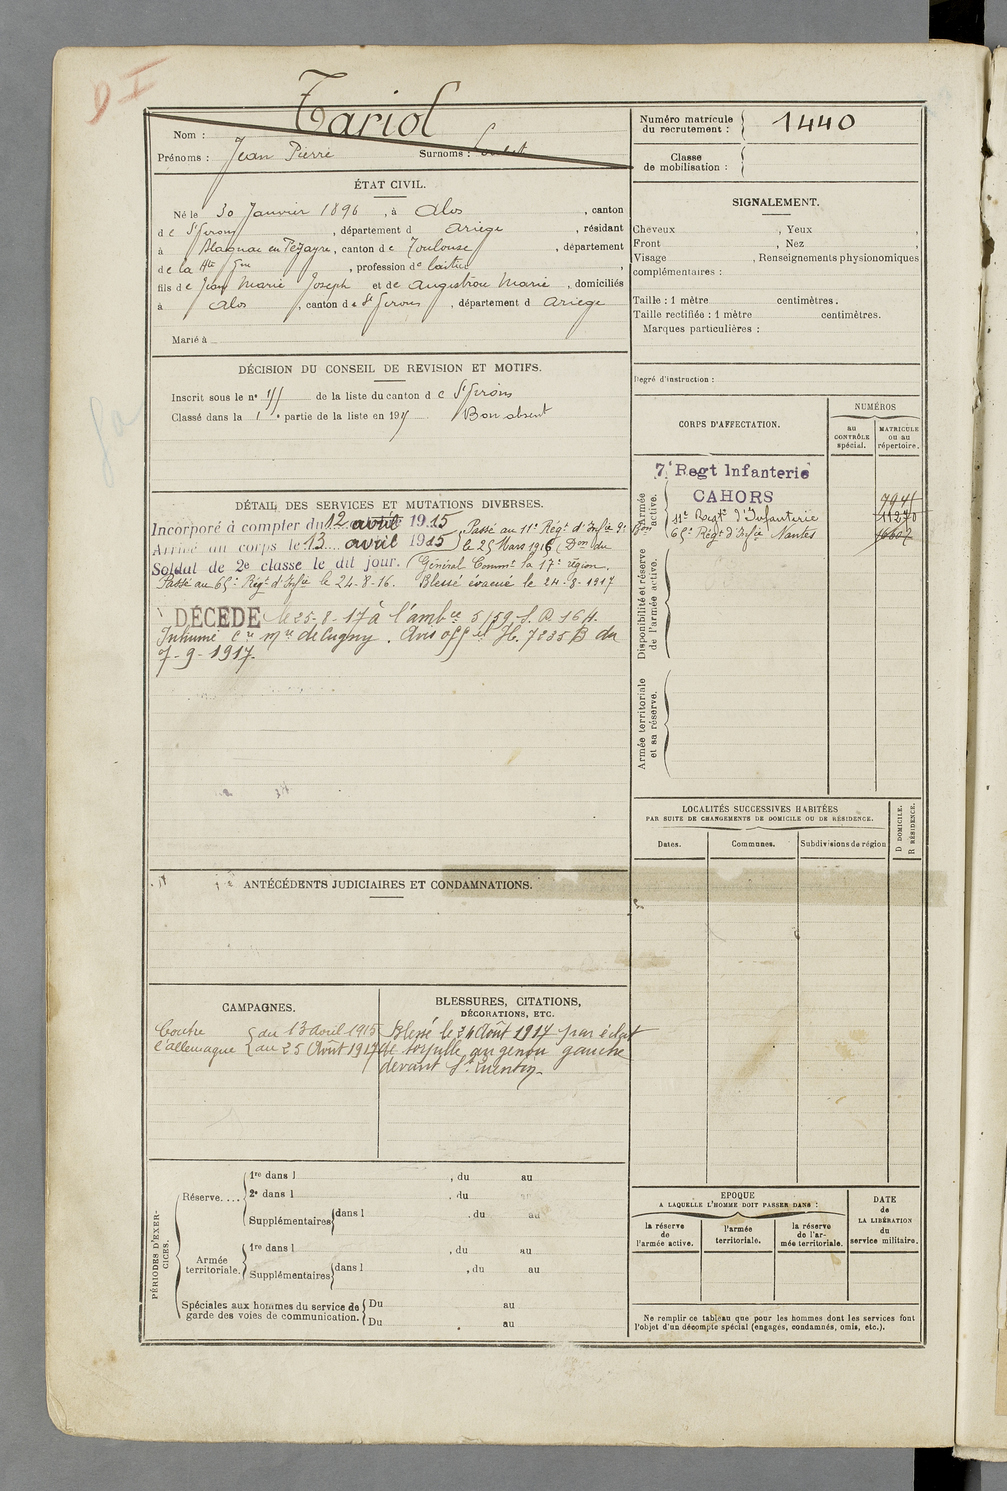 D I
Tariol
Nom :
Prénoms : Jean Pierre Surnoms :
ÉTAT CIVIL.
Né le 30 Janvier 1896, à Alos, canton
de St Girons, département d Ariège, résidant
à Blagnac en Pézayre, canton de Toulouse, département
de la Hte Gne, profession de laitier,
fils de Jean Marie Joseph et de Augistrou Marie, domiciliés
à Alos, canton de St Girons, département d Ariege
Marié à
DÉCISION DU CONSEIL DE REVISION ET MOTIFS.
Inscrit sous le nº de la liste du canton de St Girons
Classé dans la 1re partie de la liste en 191 Bon absent
DÉTAIL DES SERVICES ET MUTATIONS DIVERSES.
Incorporé à compter du 12 avril 1915 Passé au 11e Régt d'Infie
Arrivé au corps le 13 avril 1915 le 25 Mars 1916 (Don du
Soldat de 2e classe le dit jour. Général Commt la 17e région.
Passé au 65e Régt d'Infie le 24-8-16. Blessé évacué le 24-8-1917
DÉCÉDÉ le 25-8-17 à l'ambce 5/59 S.P. 164.
Inhumé cre mre de Cugny. Avis offel H. 7235 B du
7-9-1917.
ANTÉCÉDENTS JUDICIAIRES ET CONDAMNATIONS.
CAMPAGNES.
Contre l'allemagne { du 13 avril 1915
au 25 Août 1917
BLESSURES, CITATIONS,
DÉCORATIONS, ETC.
Blessé le 24 Août 1917 par éclat
de torpille au genou gauche
devant St Quentin.
PÉRIODES D'EXERCICES.
Réserve....
1re dans l , du au
2e dans l , du au
Supplémentaires dans l , du au
Armée territoriale.
1re dans l , du au
Supplémentaires dans l , du au
Spéciales aux hommes du service de
garde des voies de communication.
Du au
Du au
Numéro matricule
du recrutement : 1440
Classe
de mobilisation :
SIGNALEMENT.
Cheveux , Yeux ,
Front , Nez
Visage , Renseignements physionomiques
complémentaires :
Taille : 1 mètre centimètres.
Taille rectifiée : 1 mètre centimètres.
Marques particulières :
Degré d'instruction :
CORPS D'AFFECTATION.
NUMÉROS
au
CONTRÔLE
spécial.
MATRICULE
ou au
répertoire.
Armée
active.
7e Regt Infanterie
CAHORS
11e Regt d'Infanterie 11270
65e Régt d'Infie Nantes
Disponibilité et réserve
de l'armée active.
Armée territoriale
et sa réserve.
LOCALITÉS SUCCESSIVES HABITÉES
PAR SUITE DE CHANGEMENTS DE DOMICILE OU DE RÉSIDENCE.
Dates.
Communes.
Subdivisions de région
D DOMICILE.
R RÉSIDENCE.
EPOQUE
A LAQUELLE L'HOMME DOIT PASSER DANS :
la réserve
de
l'armée active.
l'armée
territoriale.
la réserve
de l'ar-
mée territoriale.
DATE
de
LA LIBÉRATION
du
service militaire.
Ne remplir ce tableau que pour les hommes dont les services font
l'objet d'un décompte spécial (engagés, condamnés, omis, etc.).